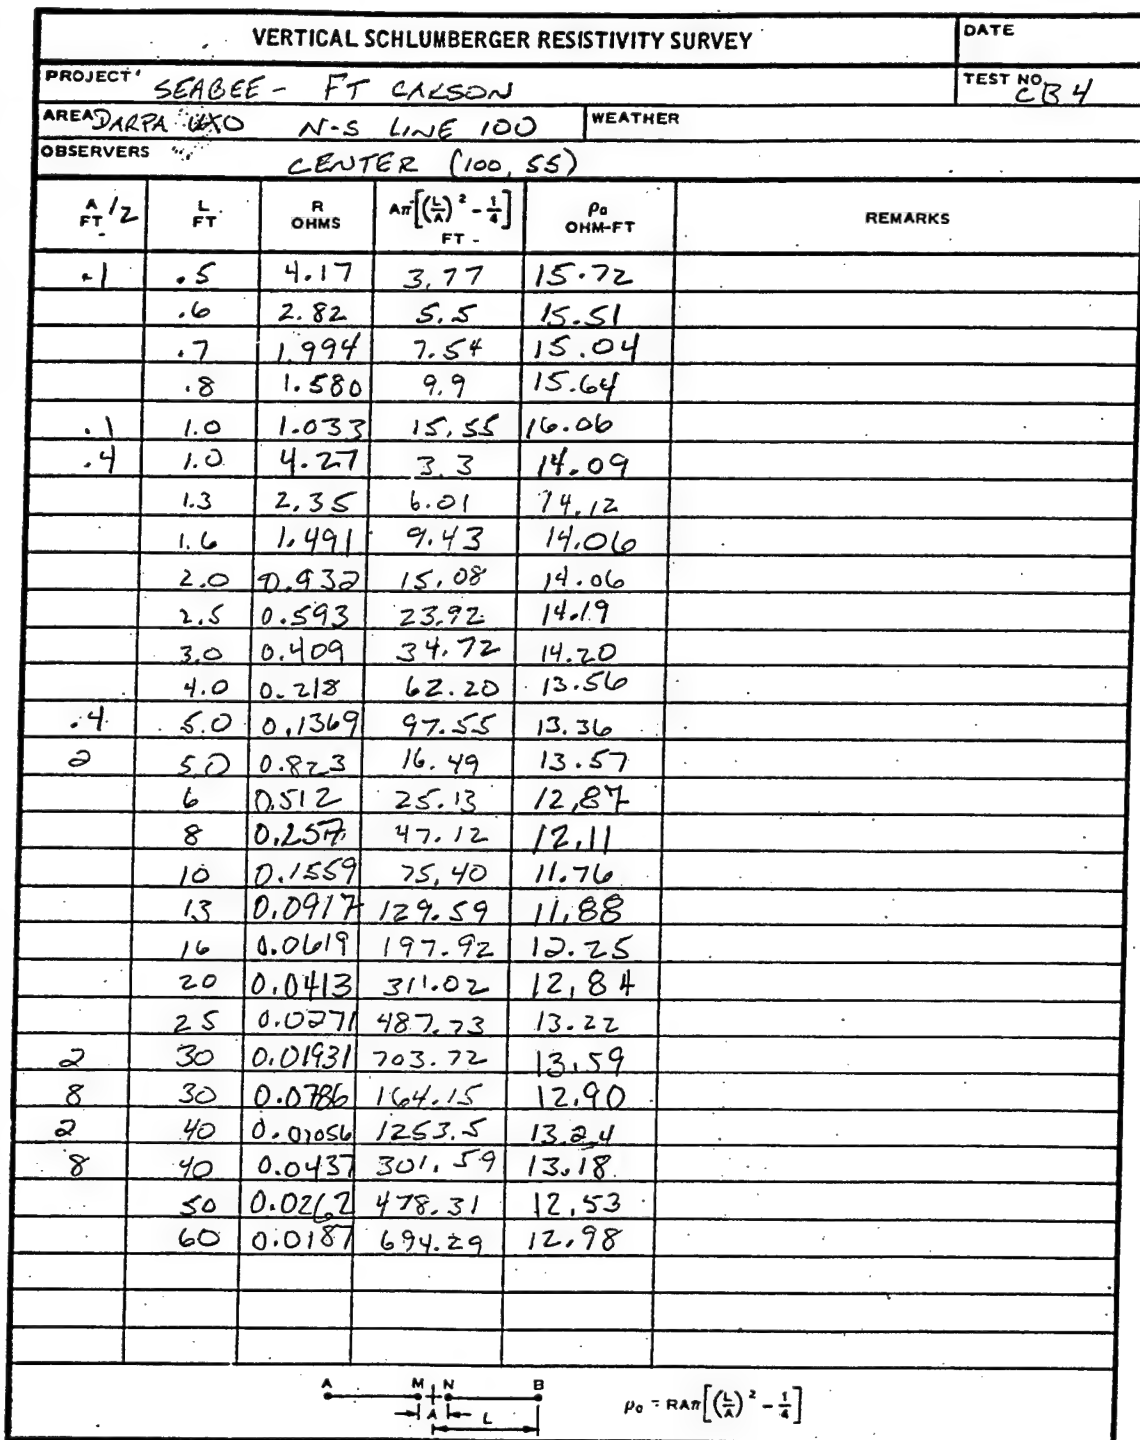 VERTICAL SCHLUMBERGER RESISTIVITY SURVEY DATE
PROJECT SEABEE - FT CARSON TEST NO. CB 4
AREA DARPA UXO N-S LINE 100 WEATHER
OBSERVERS CENTER (100, 55)
A/2 FT L FT R OHMS Aπ[(L/A)² - 1/4] FT - ρa OHM-FT REMARKS
.1 .5 4.17 3.77 15.72
.6 2.82 5.5 15.51
.7 1.994 7.54 15.04
.8 1.580 9.9 15.64
.1 1.0 1.033 15.55 16.06
.4 1.0 4.27 3.3 14.09
1.3 2.35 6.01 14.12
1.6 1.491 9.43 14.06
2.0 0.932 15.08 14.06
2.5 0.593 23.92 14.19
3.0 0.409 34.72 14.20
4.0 0.218 62.20 13.56
.4 5.0 0.1369 97.55 13.36
2 5.0 0.823 16.49 13.57
6 0.512 25.13 12.87
8 0.257 47.12 12.11
10 0.1559 75.40 11.76
13 0.0917 129.59 11.88
16 0.0619 197.92 12.25
20 0.0413 311.02 12.84
25 0.0271 487.73 13.22
2 30 0.01931 703.72 13.59
8 30 0.0786 164.15 12.90
2 40 0.01056 1253.5 13.24
8 40 0.0437 301.59 13.18
50 0.0262 478.31 12.53
60 0.0187 694.29 12.98
A M N B
A L
ρa = RAπ[(L/A)² - 1/4]